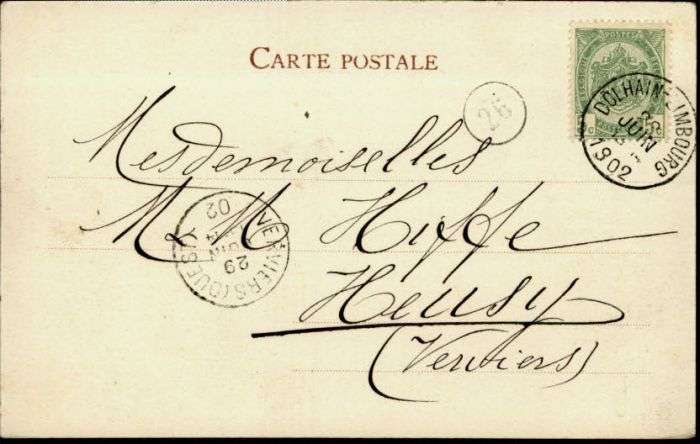 CARTE POSTALE
26
DOLHAIN-LIMBOURG
JUIN
1902
Mesdemoiselles
M M Hiffe
Heusy
(Verviers)
VERVIERS (OUEST)
29
JUIN
02